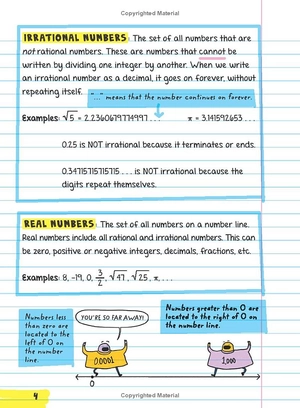 Copyrighted Material
IRRATIONAL NUMBERS: The set of all numbers that are
not rational numbers. These are numbers that cannot be
written by dividing one integer by another. When we write
an irrational number as a decimal, it goes on forever, without
repeating itself.
"..." means that the number continues on forever.
Examples: √5 = 2.2360679774997 . . . π = 3.141592653 . . .
0.25 is NOT irrational because it terminates or ends.
0.34715715715715 . . . is NOT irrational because the
digits repeat themselves.
REAL NUMBERS: The set of all numbers on a number line.
Real numbers include all rational and irrational numbers. This can
be zero, positive or negative integers, decimals, fractions, etc.
Examples: 8, -19, 0, 3/2, √47, √25, π, . . .
Numbers less
than zero are
located to the
left of 0 on
the number
line.
YOU'RE SO FAR AWAY!
0.0001
0
Numbers greater than 0 are
located to the right of 0 on
the number line.
1,000
4
Copyrighted Material